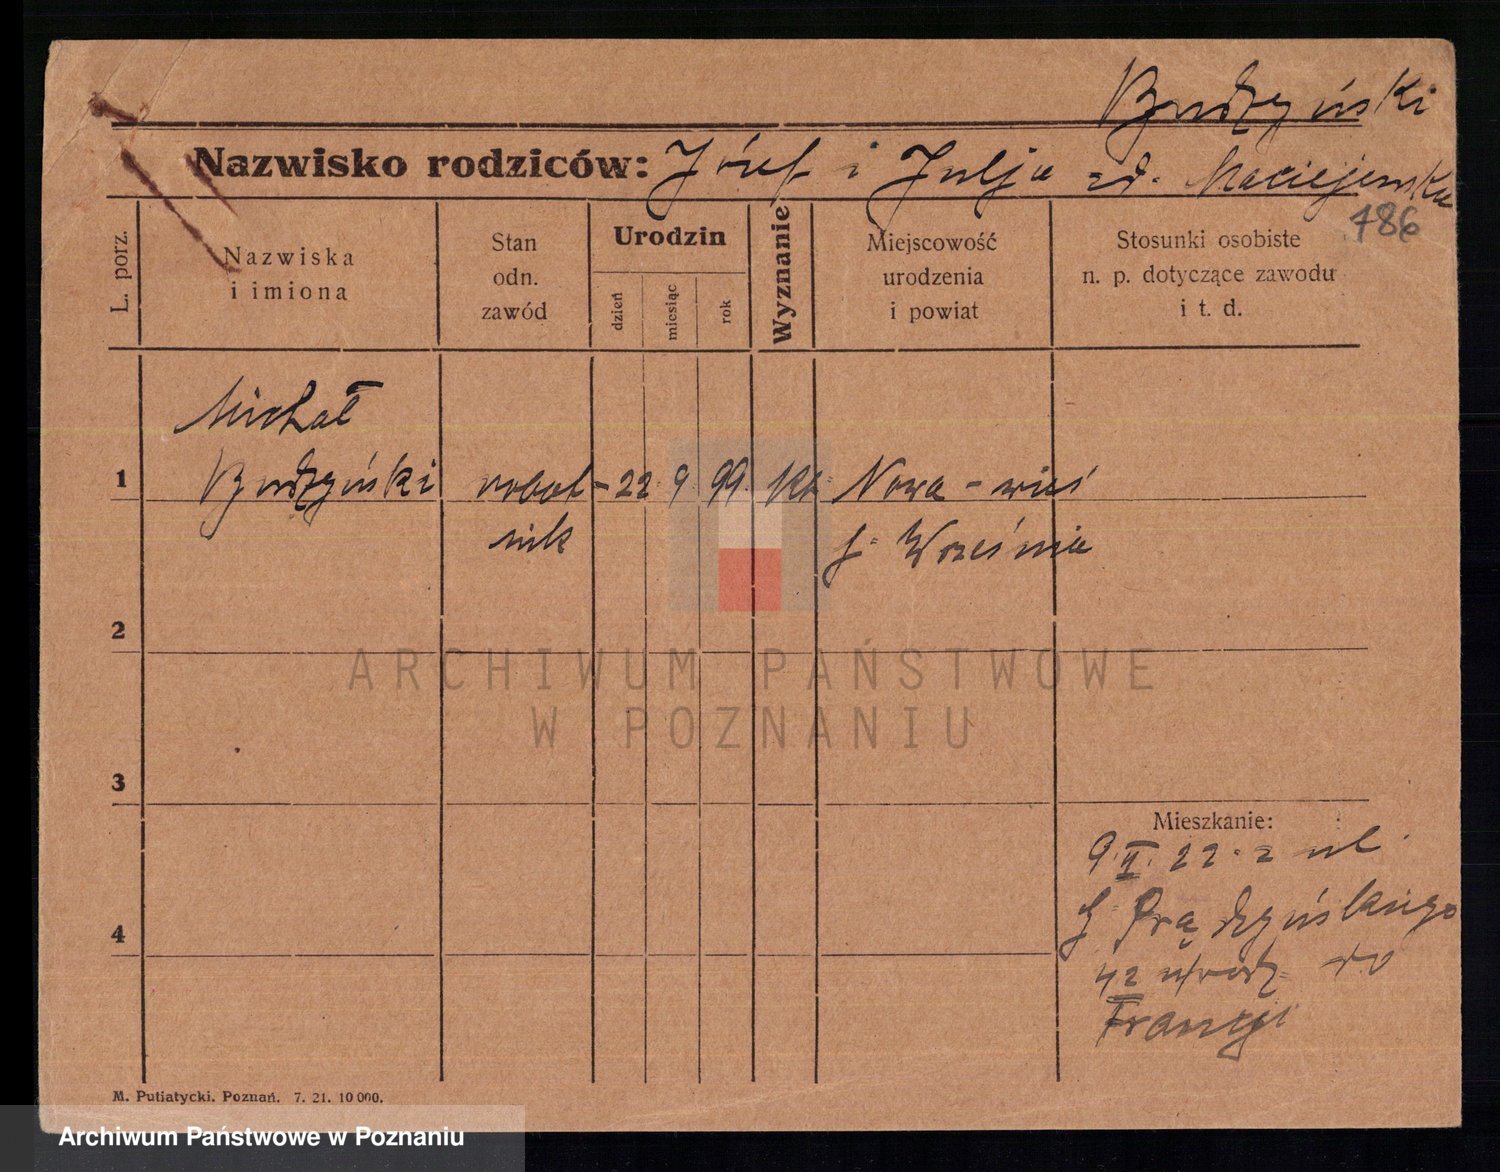 Budzyński
Nazwisko rodziców: Józef i Julja zd. Maciejewska
786
L. porz.
Nazwiska
i imiona
Stan
odn.
zawód
Urodzin
dzień
miesiąc
rok
Wyznanie
Miejscowość
urodzenia
i powiat
Stosunki osobiste
n. p. dotyczące zawodu
i t. d.
Michał
1 Budzyński robot- 22 9 99 kt Nowa-wieś
nik Września
2
3
4
Mieszkanie:
9.II.22 z ul.
Prądzyńskiego
42 do
Francji
M. Putiatycki. Poznań. 7. 21. 10 000.
ARCHIWUM PAŃSTWOWE
W POZNANIU
Archiwum Państwowe w Poznaniu